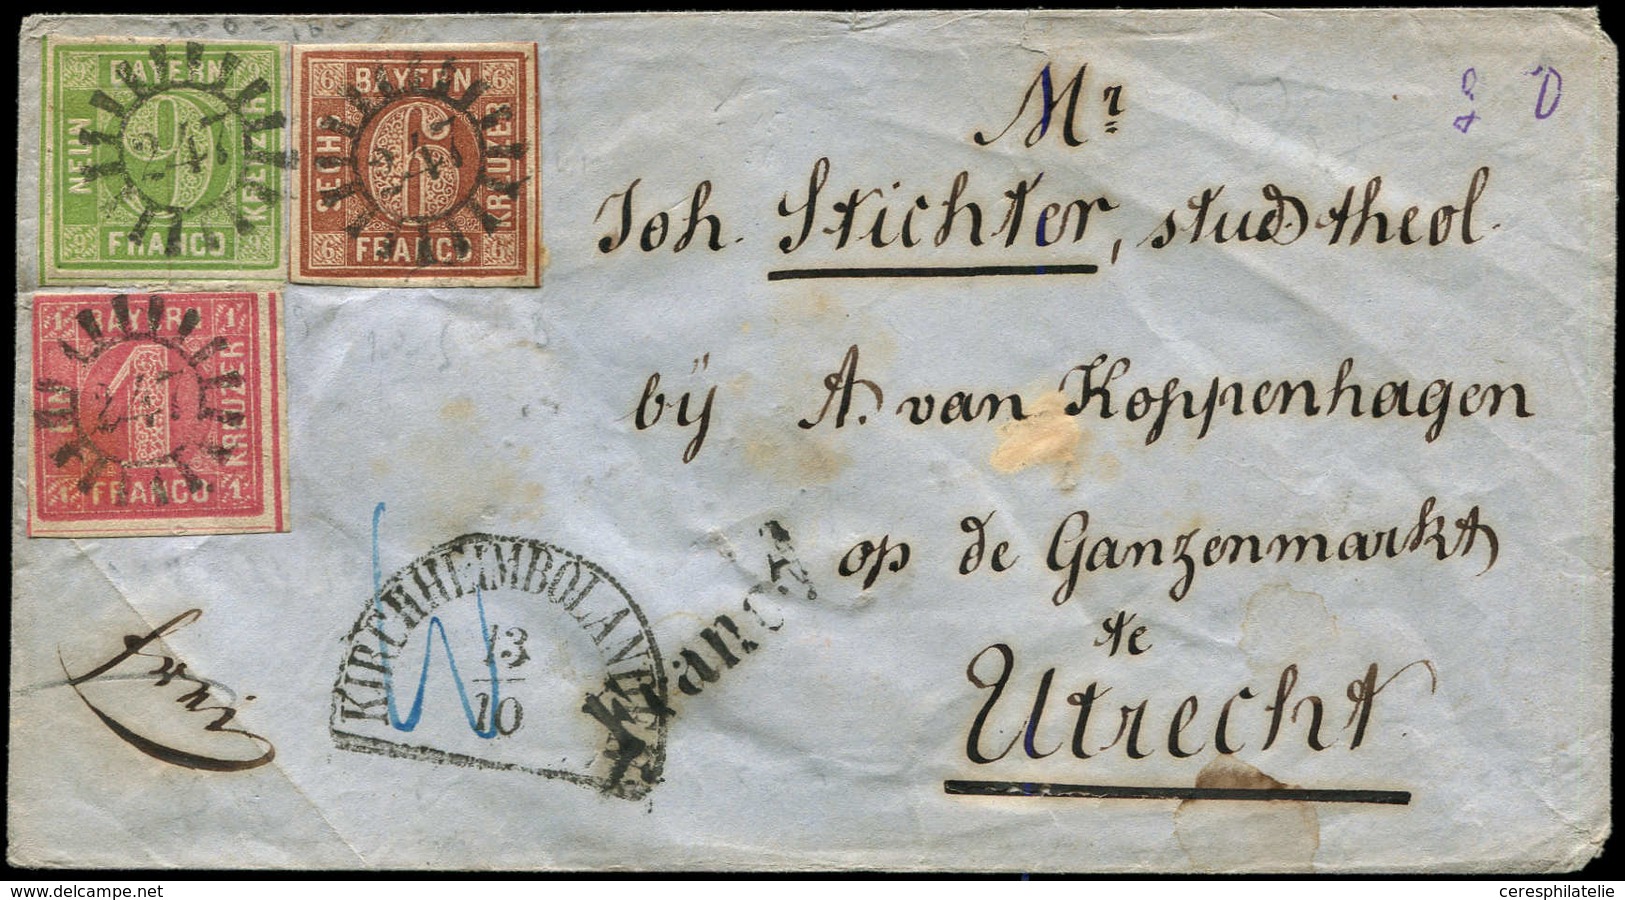 9 BAYERN 9
NEUN
9
KREUZER
9 FRANCO 9
247
6 BAYERN 6
SECHS
6
KREUZER
6 FRANCO 6
247
1 BAYERN 1
EIN
1
KREUZER
1 FRANCO 1
247
Mr
Joh. Stichter, stud. theol.
bij A. van Koppenhagen
op de Ganzenmarkt
te
Utrecht
KIRCHHEIMBOLAND
13
10
Franco
frei
delcampe.net
ceresphilatelie